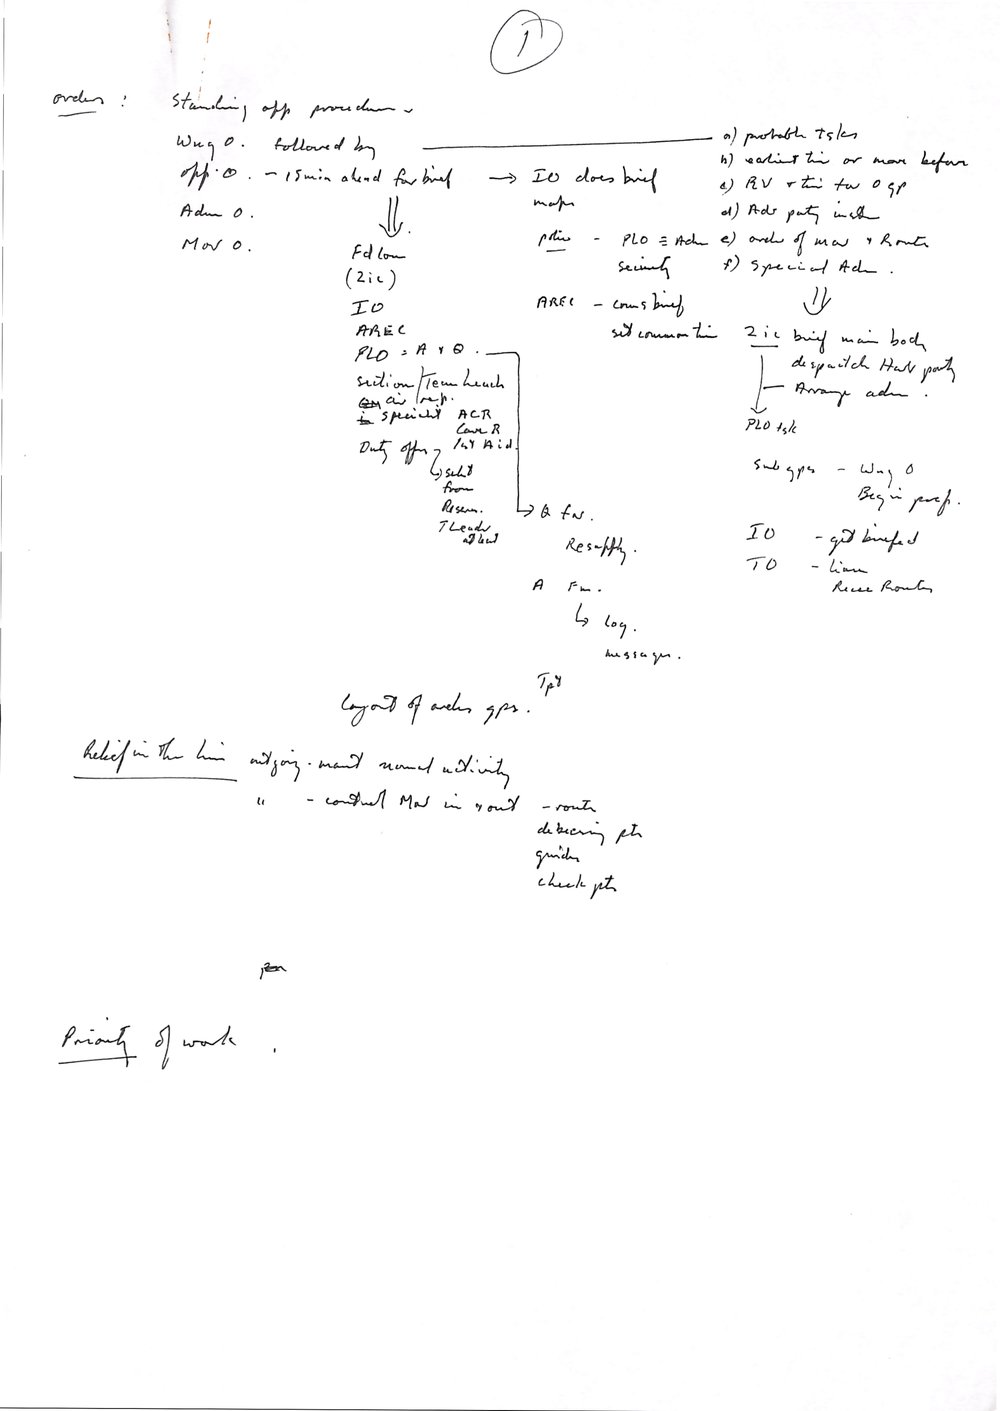 1
Orders : Standing opp procedure
Wng O. followed by
opp. O - 15 min ahead for brief → IO does brief
maps
Adm O.
Mov O.
a) probable tsks
b) earliest tim or move before
c) RV + tim for O gp
d) Adv party instr
e) order of mov + Route
f) Special Adm.
police - PLO ≡ Adm
security
AREC - coms brief
set common tim
Fd Com
(2ic)
IO
AREC
PLO = A + Q.
section/Team leads
air rep.
specialist ACR
Cave R
1st Aid.
Duty offr
select
from
Reserv.
T Leader
at least
2ic brief main body
despatch Harb party
Arrange adm.
PLO tsk
Sub gps - Wng O
Begin prep.
IO - get briefed
TO - liase
Recce Routes
Q fn.
Resupply.
A Fn.
↳ log.
messages.
Tpt
Layout of orders gps.
Relief in the line outgoing - maint normal activity
" - control Mov in + out - route
debussing pts
guides
check pts
Priority of work.